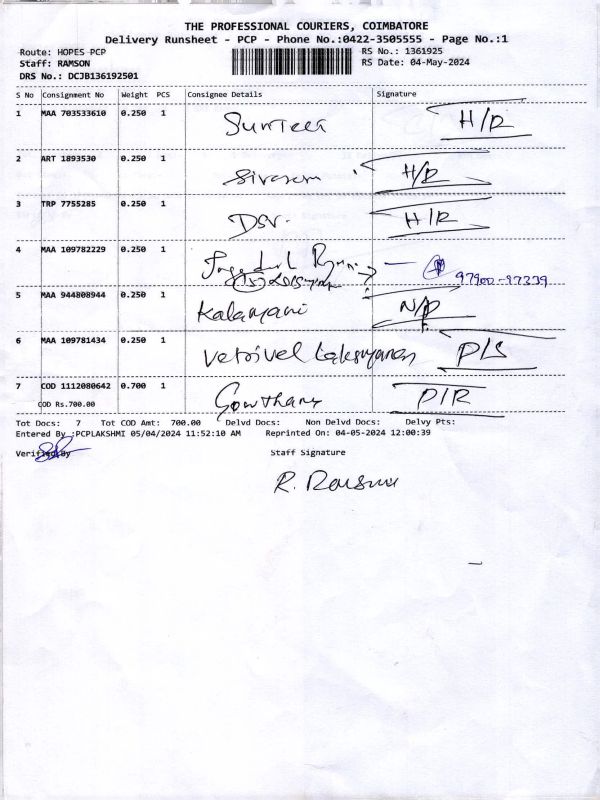 THE PROFESSIONAL COURIERS, COIMBATORE
Delivery Runsheet - PCP - Phone No.:0422-3505555 - Page No.:1
Route: HOPES PCP RS No.: 1361925
Staff: RAMSON RS Date: 04-May-2024
DRS No.: DCJB136192501
S No Consignment No Weight PCS Consignee Details Signature
1 MAA 703533610 0.250 1 H/R
2 ART 1893530 0.250 1 H/R
3 TRP 7755285 0.250 1 H/R
4 MAA 109782229 0.250 1 97900-97339
5 MAA 944808944 0.250 1 Kalamani N/P
6 MAA 109781434 0.250 1 Vetrivel D/S
7 COD 1112080642 0.700 1 Gowtham D/R
COD Rs.700.00
Tot Docs: 7 Tot COD Amt: 700.00 Delvd Docs: Non Delvd Docs: Delvy Pts:
Entered By :PCPLAKSHMI 05/04/2024 11:52:10 AM Reprinted On: 04-05-2024 12:00:39
Verified By Staff Signature